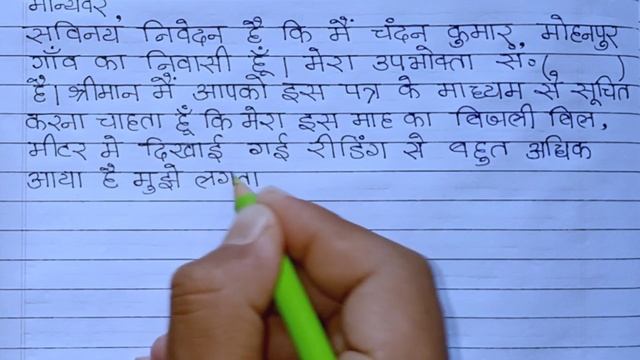 मान्यवर,
सविनय निवेदन है कि मैं चंदन कुमार, मोहनपुर
गाँव का निवासी हूँ। मेरा उपभोक्ता सं॰ (        )
है। श्रीमान मैं आपको इस पत्र के माध्यम से सूचित
करना चाहता हूँ कि मेरा इस माह का बिजली बिल,
मीटर मे दिखाई गई रीडिंग से बहुत अधिक
आया है मुझे लगता